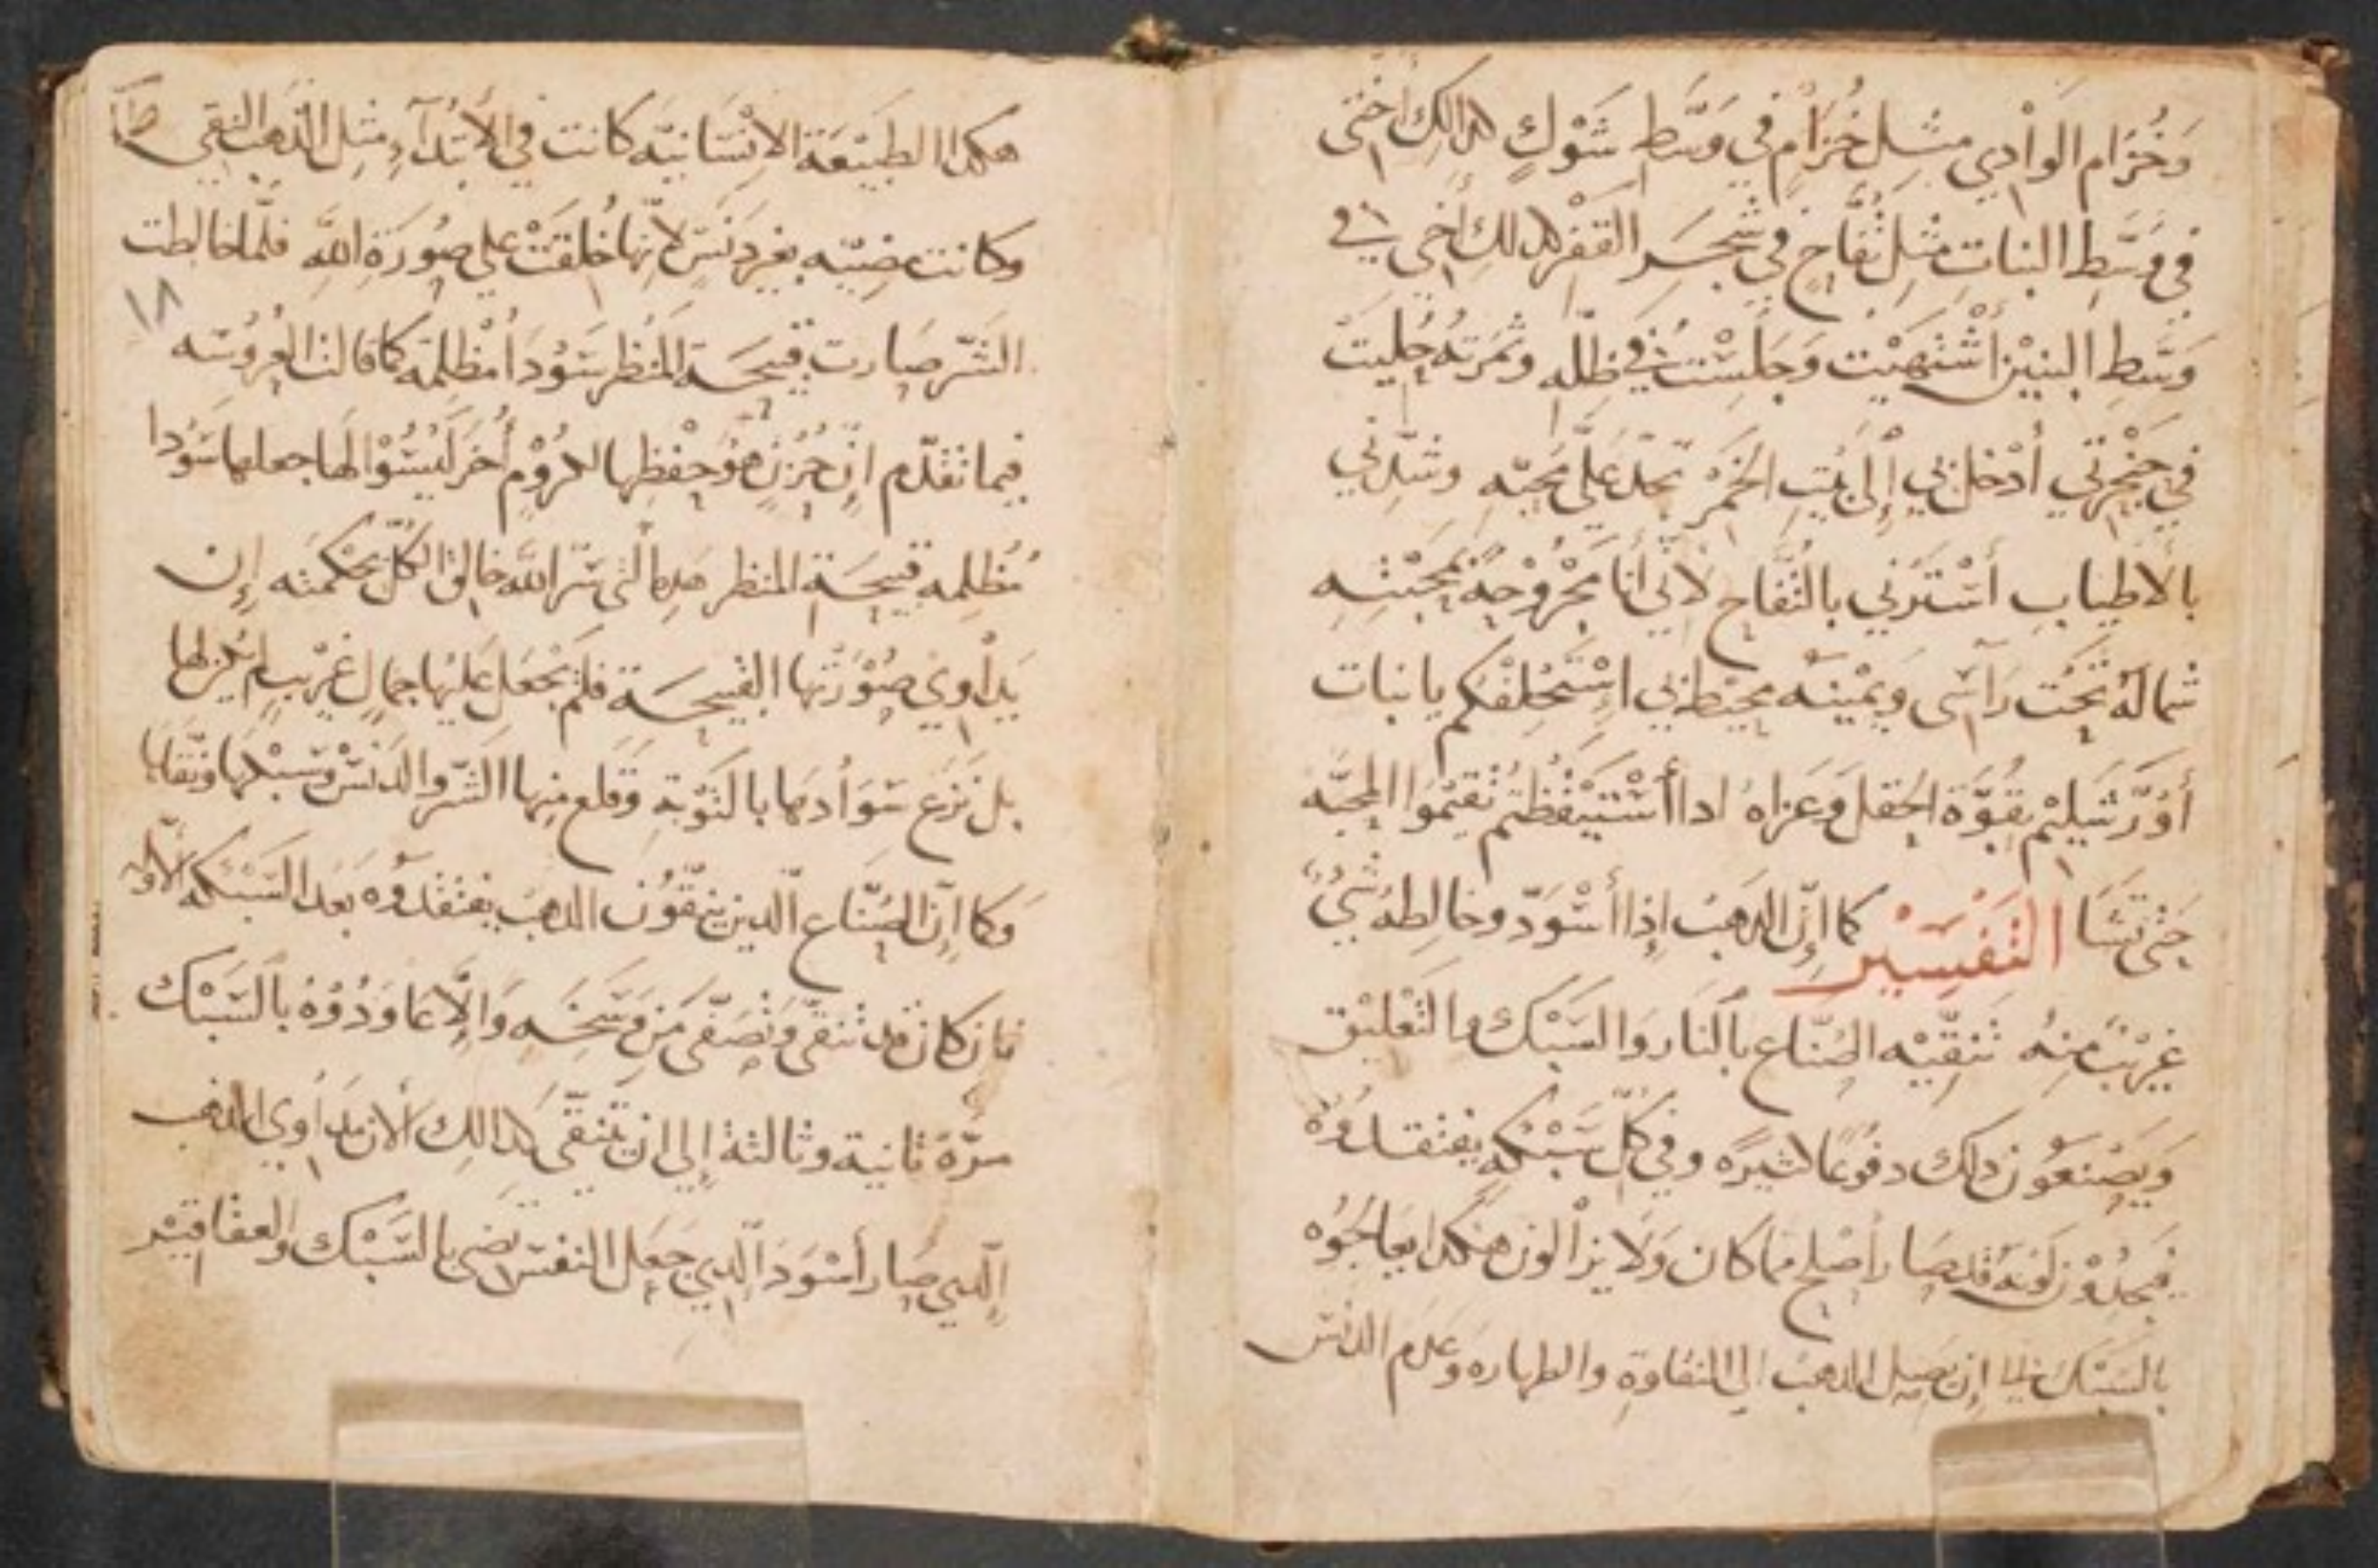 وَخُزَام الوَادِي مثِل خُزَامٍ في وَسَط شَوْكٍ كدالك أختى
في وَسَطِ البنات مثِل تُفَّاحٍ في شَجَر القَفْر كدلك أخى في
وَسَطِ البنيْن أشْتهَيْت وَجَلسْت في ظلّه وثمَرتهُ حَليَتْ
في حَنْجَرَتي أدْخلني إلى بَيْتِ الخَمْر تحدّ عَليَّ محبّه وشدّني
بالأطياب أسْتَرني بالتُفّاح لأنّي أنا مجْرُوْحَة بمحبّتِهِ
شمالهُ تحْت رَاسَى وَيمْينه محيْط بي اسْتَحْلفكم يا بنات
أوْرَشَليْم بقُوَّة الحَقل وَعَزَاهُ ادا أسْتيْقظتم تُقيْمُوا المحبَّه
حَتى تشَا التفسير كما إنّ الدَهبُ إذا أسْوَدّ وخالطِهُ شَيْ
غريْبٌ مِنهُ تنقّيْه الصُنّاع بالنّار وَالسَبْك والتَعْليْق
وَيَصْنعُوْن دلك دفوُعًا كثيرَه وفي كُلّ سَبْكه يفتقدُوْهُ
فيَجدُوْن لَوْنهُ قد صَار أصْلح مما كان وَلا يزالون هَكدا يعَالجُوْه
بالسَبْك إلى إن يصِل الدهبُ إلى النقاوةِ والطهاره وَعَدَم الدنس
هكدا الطبَيْعَة الإنسَانيّه كانت في الأبْتدآءِ مثِل الدَّهب النقى
وكانت مضِيّه بغير دَنَسٍ لأنّها خُلقَتْ على صُورَةِ اللَّهِ فلّما خالطت
الشَّرّ صَارت قبيْحَة المنْظر سَوُدَا مُظْلِمَه كما قالت العَرُوسَه
فيما تقدّم انِّ حُزنٍ هُوَ حفْظها لكرُوْمٍ أُخَر لَيْسُوْا لهَا جعلها سَوُدا
مُظلِمه قبيحَة المنظر هَدهِ التي سَرّ اللَّه خالِق الكُلّ بحْكمتَه إِن
يَدَاوِىْ صُوْرَتهَا القبيْحَة فلَمْ يجْعَل عَليْهَا جمالٍ غريْبٍ لم يكن لها
بل نزَع سَوَادهَا بالتَوْبَةِ وَقلع مِنها الشَرّ والدَنس وَسَبْكها ونقّاها
وَكما إنّ الصُنّاع الّدين ينقّوُن الدهبَ يفتقدُوُه بَعْد السَبْكه الأولّه
فان كان قد تنقّى وتصَفّى مَن وَسَخِهِ وَالّا عَاوَدُوْهُ بالسَبْك
مَرَّةً ثانية وثالثة إلى ان يَتنقّى كَدالِك ألأن مدَاوِي الدهب
إلّدي صَار أسْوَد الّدي جَعَل النفس تضى بالسَبْك والعقاقيْر
١٨